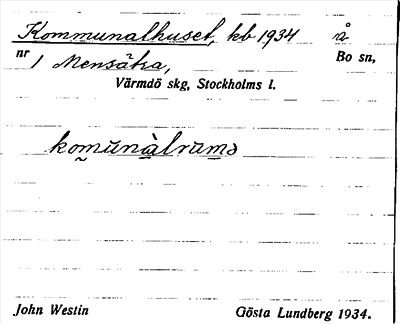 Kommunalhuset, kb 1934 å
nr 1 Mensättra, Bo sn,
Värmdö skg, Stockholms l.
komunàlrumə
John Westin Gösta Lundberg 1934.